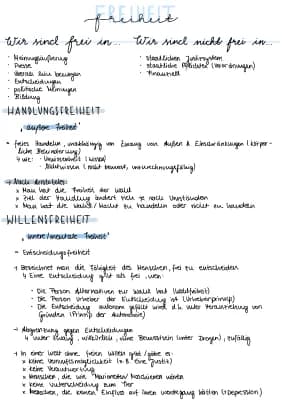 FREIHEIT
freiheit
Wir sind frei in... Wir sind nicht frei in...
· Meinungsäußerung · staatlichen Justizsystem
· Presse · staatliche Pflichten (Verordnungen)
· überall hin bewegen · Finanziell
· Entscheidungen
· politische Meinungen
· Bildung
HANDLUNGSFREIHEIT
„äußere Freiheit"
= freies Handeln, unabhängig von Zwang von außen & Einschränkungen (körper-
liche Behinderung)
↳ wie: · Unwissenheit (Wissen)
· (nicht bewusst, unzurechnungsfähig)
→ Nach Aristoteles
x Man hat die Freiheit der Wahl
x Ziel der Handlung ändert sich je nach Umständen
x Man hat die Wahl/Macht zu handeln oder nicht zu handeln
WILLENSFREIHEIT
„innere/mentale Freiheit"
= Entscheidungsfreiheit
→ Bezeichnet man die Fähigkeit des Menschen, frei zu entscheiden
↳ Eine Entscheidung gilt als frei, wenn:
· Die Person Alternativen zur Wahl hat (Wahlfreiheit)
· Die Person Urheber der Entscheidung ist (Urheberprinzip)
· Die Entscheidung autonom gefällt wird d.h. unter von
Gründen (Prinzip der Autonomie)
→ Abgrenzung gegen Entscheidungen
↳ unter Zwang, willkürlich, ohne Bewusstsein (unter Drogen), zufällig
→ In einer Welt ohne freien Willen gibt/gäbe es:
x keine (z.B. eine Justiz)
x keine Verantwortung
x Menschen, die wie "Marionetten" wären
x keine Unterscheidung zum Tier
x Menschen, die keinen Einfluss auf ihren Werdegang hätten (Depression)